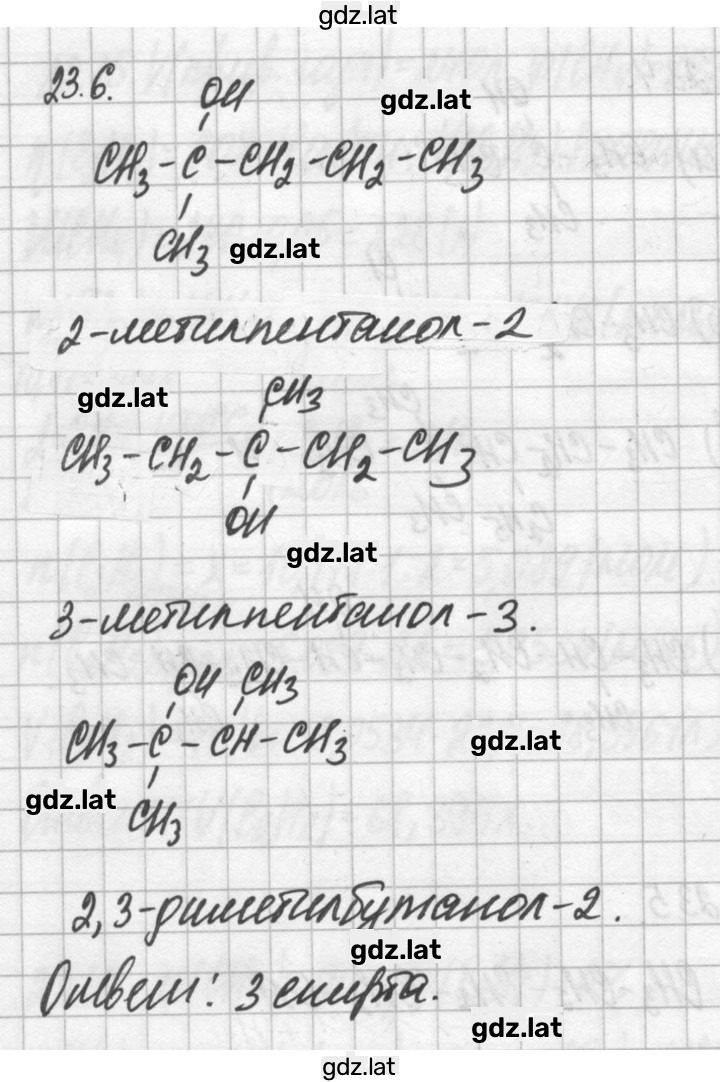 gdz.lat
23.6.
OH
gdz.lat
CH3 - C - CH2 - CH2 - CH3
CH3
gdz.lat
2-метилпентанол-2
gdz.lat
CH3
CH3 - CH2 - C - CH2 - CH3
OH
gdz.lat
3-метилпентанол-3.
OH CH3
CH3 - C - CH - CH3
gdz.lat
gdz.lat
CH3
2,3-диметилбутанол-2.
gdz.lat
Ответ: 3 спирта.
gdz.lat
gdz.lat